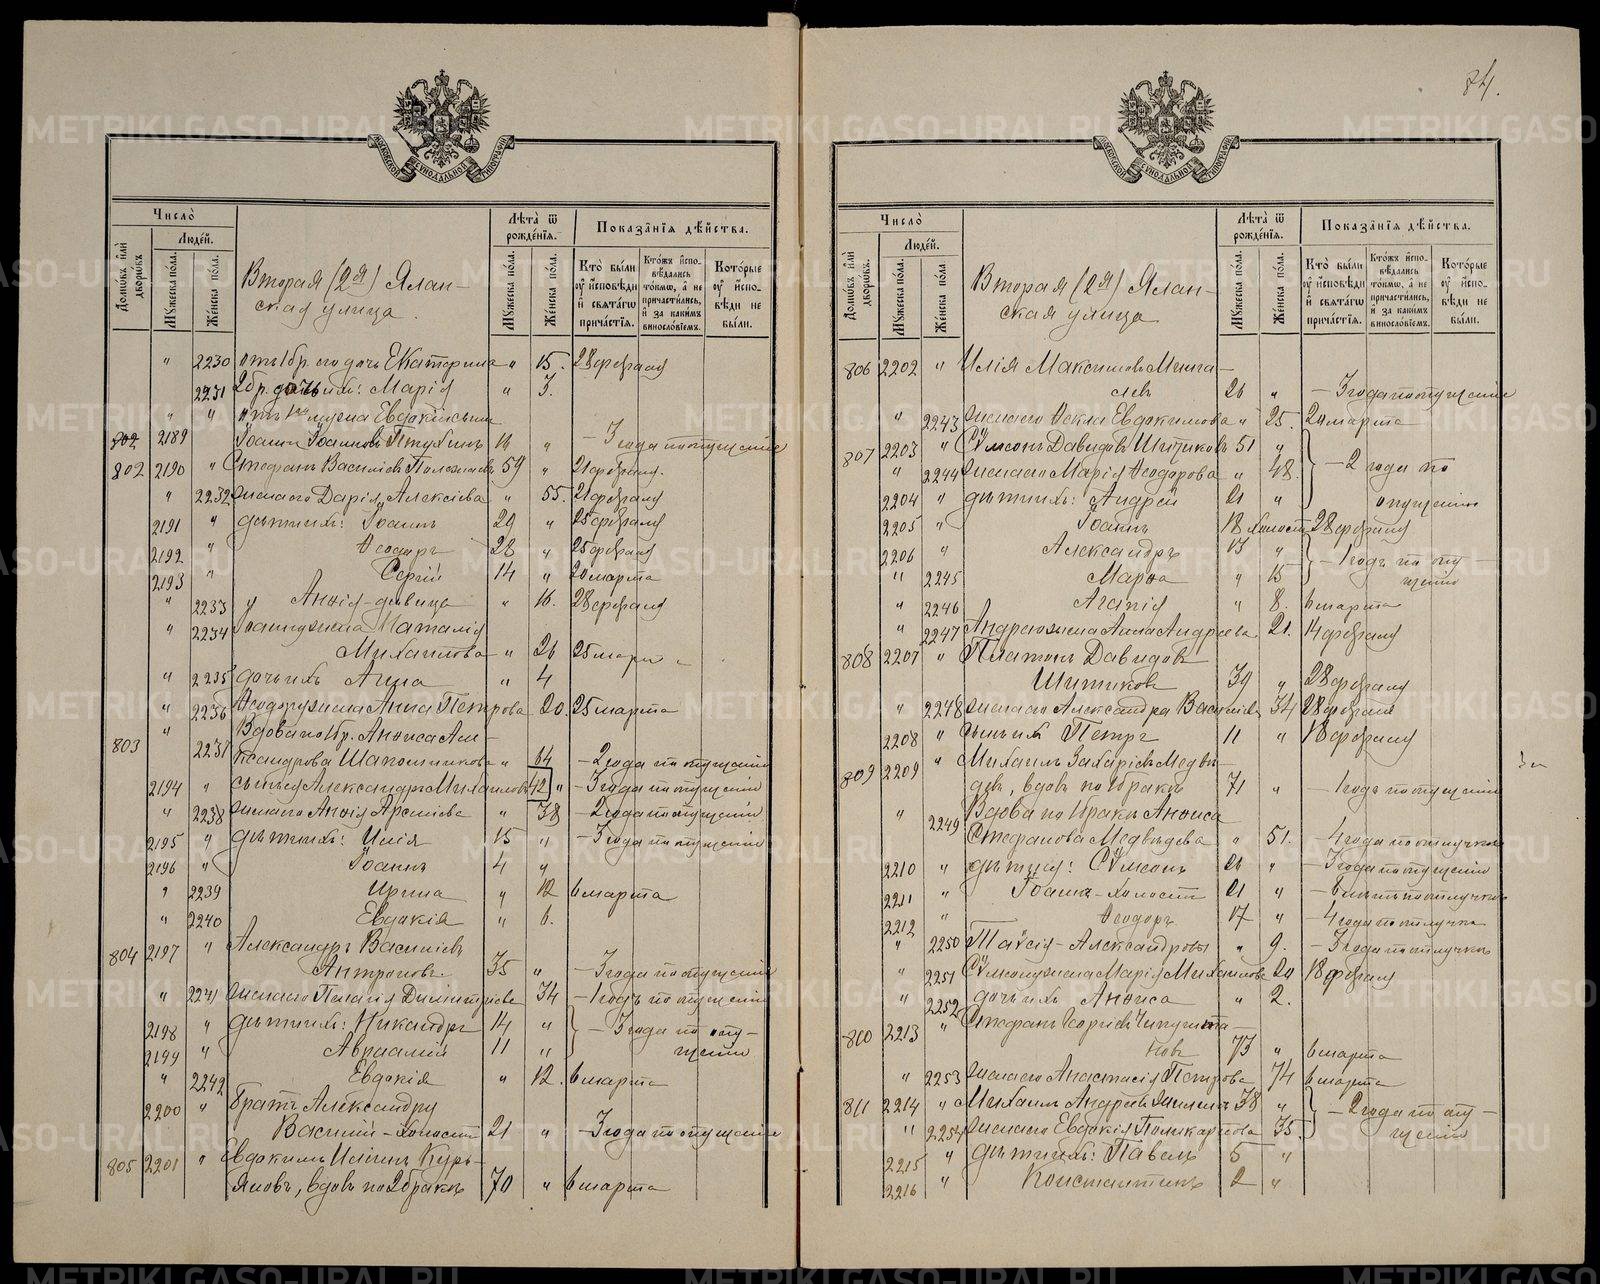 84.
МОСКОВСКОЙ СѴНОДАЛЬНОЙ ТИПОГРАФІИ
Число̀
Людéй.
Домѡвъ илѝ дворѡвъ.
Мꙋжеска пóла.
Жéнска пóла.
Вторая (2я) Ялан-
ская улица.
Лѣта̀ ѿ рождéнїѧ.
Мꙋжеска пóла.
Жéнска пóла.
Показа̑нїѧ дѣ́йства.
Кто̀ были ᲂу҆ и҆сповѣди и҆ свѧтáгѡ причáстїѧ.
Кто́жъ и҆спо-вѣ́дались то́кмѡ, а҆ не причасти́лись, и҆ за каки́мъ винослóвїемъ.
Котóрые ᲂу҆ и҆спо-вѣди не бы́ли.
" 2230 отъ 1 бр. его дочь Екатерина " 15. 28 февраля
2231 2 бр. дочь ихъ: Марія " 3.
" " отъ 1го мужа Евдокіи сынъ
802 2189 Іоаннъ Іоанновъ Пѣтухинъ 16 " - 3 года по опущенію
802 2190 " Стефанъ Василіевъ Полежаевъ 59 " 21 февраля.
" 2232 жена его Дарія Алексіева " 55. 21 февраля
2191 " дѣти ихъ: Іоаннъ 29 " 25 февраля
2192 " Ѳеодоръ 28 " 25 февраля
2193 " Сергій 14 " 20 марта
" 2233 Анѳія - дѣвица " 16. 28 февраля
" 2234 Іоанну жена Наталія
Михаилова " 26 25 март
" 2235 дочь ихъ Анна " 4
" 2236 Ѳеодору жена Анна Петрова 20. 25 марта
803 " Вдова по 1 бр. Анѳиса Але-
2237 ксандрова Шапошникова " 64 - 2 года по опущенію
2194 " сынъ ея Александръ Михаиловъ 42 " - 3 года по опущенію
" 2238 жена его Анѳія Арсеніева " 38 - 2 года по опущенію
2195 " дѣти ихъ: Илія 15 " - 3 года по опущенію
2196 " Іоаннъ 4 "
" 2239 Ирина " 12 6 марта
" 2240 Евдокія " 6.
804 2197 " Александръ Василіевъ
Антроповъ. 35 " - 3 года по опущенію
" 2241 жена его Пелагія Димитріева 34 - 1 годъ по опущенію
2198 " дѣти ихъ: Никандръ 14 " - 3 года по опу-
2199 " Авраамій 11 " щенію
" 2242 Евдокія " 12. 6 марта
2200 " Братъ Александру
Василій - холостъ 21 " - 3 года по опущенію
805 2201 " Евдокимъ Иліинъ Курь-
яновъ, вдовъ по 2 бракѣ 70 " 6 марта
Число̀
Людéй.
Домѡвъ илѝ дворѡвъ.
Мꙋжеска пóла.
Жéнска пóла.
Вторая (2я) Ялан-
ская улица
Лѣта̀ ѿ рождéнїѧ.
Мꙋжеска пóла.
Жéнска пóла.
Показа̑нїѧ дѣ́йства.
Кто̀ были ᲂу҆ и҆сповѣди и҆ свѧтáгѡ причáстїѧ.
Кто́жъ и҆спо-вѣ́дались то́кмѡ, а҆ не причасти́лись, и҆ за каки́мъ винослóвїемъ.
Котóрые ᲂу҆ и҆спо-вѣди не бы́ли.
806 2202 " Илія Максимовъ
26 " - 3 года по опущенію
" 2243 жена его Ѳекла Евдокимова " 25. 20 марта
807 2203 " Сѵмеонъ Давидовъ Шитиковъ 51 "
" 2244 жена его Марія Ѳеодорова " 48. - 2 года по
2204 " дѣти ихъ: Андрей 21 " опущенію
2205 " Іоаннъ 18 холостъ 28 февраля
2206 " Александръ 13 " - 1 годъ по опу-
" 2245 Марѳа " 15 щенію
" 2246 Агапія " 8. 6 марта
" 2247 Андрею жена Анна Андреева. 21. 14 февраля
808 2207 " Платонъ Давидовъ
Шитиковъ 39 " 28 февраля
" 2248 жена его Александра Василіева 34 28 февраля
2208 " сынъ ихъ Петръ 11 " 18 февраля
809 2209 " Михаилъ Захаріевъ Медвѣ-
девъ, вдовъ по 1 бракѣ 71 " - 1 годъ по опущенію
" 2249 Вдова по 1 бракѣ Анѳиса
Стефанова Медвѣдева " 51. - 4 года по отлучкѣ
2210 " дѣти ея: Сѵмеонъ 26 " - 3 года по опущенію
2211 " Іоаннъ - холостъ 21 " - 6 лѣтъ по отлучкѣ
2212 " Ѳеодоръ 17 " - 4 года по отлучкѣ
" 2250 Таисія - Александрова " 9. - 3 года по отлучкѣ
" 2251 Сѵмеону жена Марія Михаилова 20 18 февраля
" 2252 дочь ихъ Анѳиса " 2.
810 2213 " Стефанъ Георгіевъ
новъ 73 " 6 марта
" 2253 жена его Анастасія Петрова 74 6 марта
811 2214 " Михаилъ Андреевъ 38 " - 2 года по опу-
" 2254 жена его Евдокія Поликарпова 35. щенію
2215 " дѣти ихъ: Павелъ 5 "
2216 " Константинъ 2 "